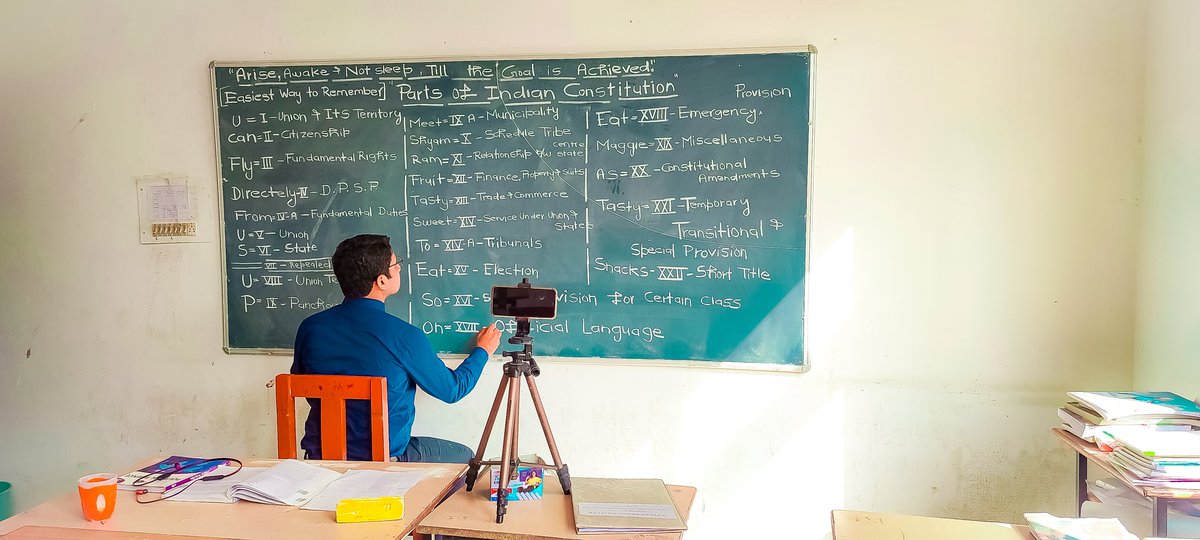 "Arise, Awake & Not sleep, Till the Goal is Achieved."
[Easiest Way to Remember] "Parts of Indian Constitution"
U = I - Union & Its Territory
Can = II - Citizenship
Fly = III - Fundamental Rights
Directely = IV - D.P.S.P
From = IV-A - Fundamental Duties
U = V - Union
S = VI - State
VII - Repealed
U = VIII - Union
P = IX -
Meet = IX A - Municipality
Shyam = X - Schedule Tribe
Ram = XI - Relationship b/w centre state
Fruit = XII - Finance, Property & Suits
Tasty = XIII - Trade & Commerce
Sweet = XIV - Service Under Union &
States
To = XIV-A - Tribunals
Eat = XV - Election
So = XVI - for Certain Class
On = XVII - Official Language
Provision
Eat = XVIII - Emergency,
Maggie = XIX - Miscellaneous
As = XX - Constitutional
Amendments
Tasty = XXI - Temporary
Transitional &
Special Provision
Snacks - XXII - Short Title